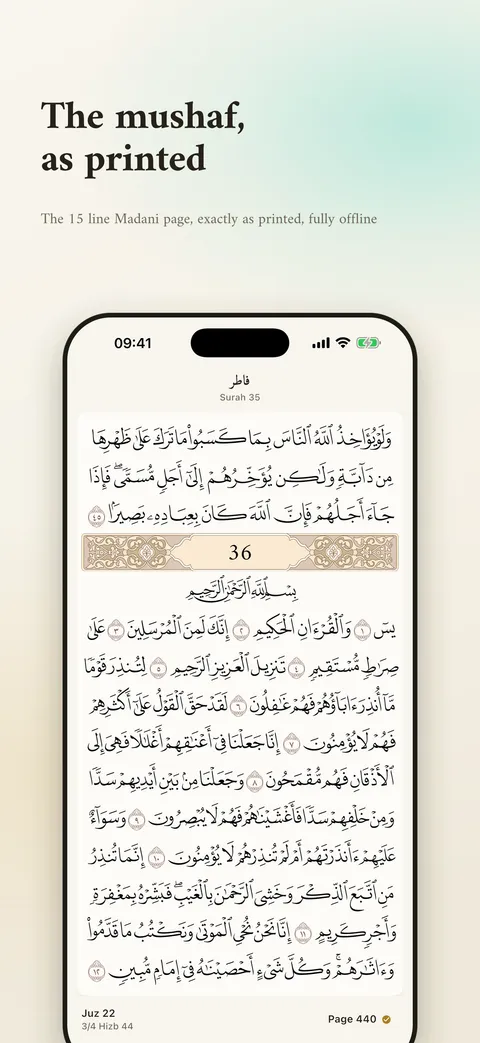 The mushaf,
as printed
The 15 line Madani page, exactly as printed, fully offline
09:41
فاطر
Surah 35
وَلَوْ يُؤَاخِذُ ٱللَّهُ ٱلنَّاسَ بِمَا كَسَبُوا۟ مَا تَرَكَ عَلَىٰ ظَهْرِهَا
مِن دَآبَّةٍ وَلَـٰكِن يُؤَخِّرُهُمْ إِلَىٰٓ أَجَلٍ مُّسَمًّى ۖ فَإِذَا
جَآءَ أَجَلُهُمْ فَإِنَّ ٱللَّهَ كَانَ بِعِبَادِهِۦ بَصِيرًۢا ٤٥
36
بِسْمِ ٱللَّهِ ٱلرَّحْمَـٰنِ ٱلرَّحِيمِ
يسٓ ١ وَٱلْقُرْءَانِ ٱلْحَكِيمِ ٢ إِنَّكَ لَمِنَ ٱلْمُرْسَلِينَ ٣ عَلَىٰ
صِرَٰطٍ مُّسْتَقِيمٍ ٤ تَنزِيلَ ٱلْعَزِيزِ ٱلرَّحِيمِ ٥ لِتُنذِرَ قَوْمًا
مَّآ أُنذِرَ ءَابَآؤُهُمْ فَهُمْ غَـٰفِلُونَ ٦ لَقَدْ حَقَّ ٱلْقَوْلُ عَلَىٰٓ أَكْثَرِهِمْ
فَهُمْ لَا يُؤْمِنُونَ ٧ إِنَّا جَعَلْنَا فِىٓ أَعْنَـٰقِهِمْ أَغْلَـٰلًا فَهِىَ إِلَى
ٱلْأَذْقَانِ فَهُم مُّقْمَحُونَ ٨ وَجَعَلْنَا مِنۢ بَيْنِ أَيْدِيهِمْ سَدًّا
وَمِنْ خَلْفِهِمْ سَدًّا فَأَغْشَيْنَـٰهُمْ فَهُمْ لَا يُبْصِرُونَ ٩ وَسَوَآءٌ
عَلَيْهِمْ ءَأَنذَرْتَهُمْ أَمْ لَمْ تُنذِرْهُمْ لَا يُؤْمِنُونَ ١٠ إِنَّمَا تُنذِرُ
مَنِ ٱتَّبَعَ ٱلذِّكْرَ وَخَشِىَ ٱلرَّحْمَـٰنَ بِٱلْغَيْبِ ۖ فَبَشِّرْهُ بِمَغْفِرَةٍ
وَأَجْرٍ كَرِيمٍ ١١ إِنَّا نَحْنُ نُحْىِ ٱلْمَوْتَىٰ وَنَكْتُبُ مَا قَدَّمُوا۟
وَءَاثَـٰرَهُمْ ۚ وَكُلَّ شَىْءٍ أَحْصَيْنَـٰهُ فِىٓ إِمَامٍ مُّبِينٍ ١٢
Juz 22
3/4 Hizb 44
Page 440